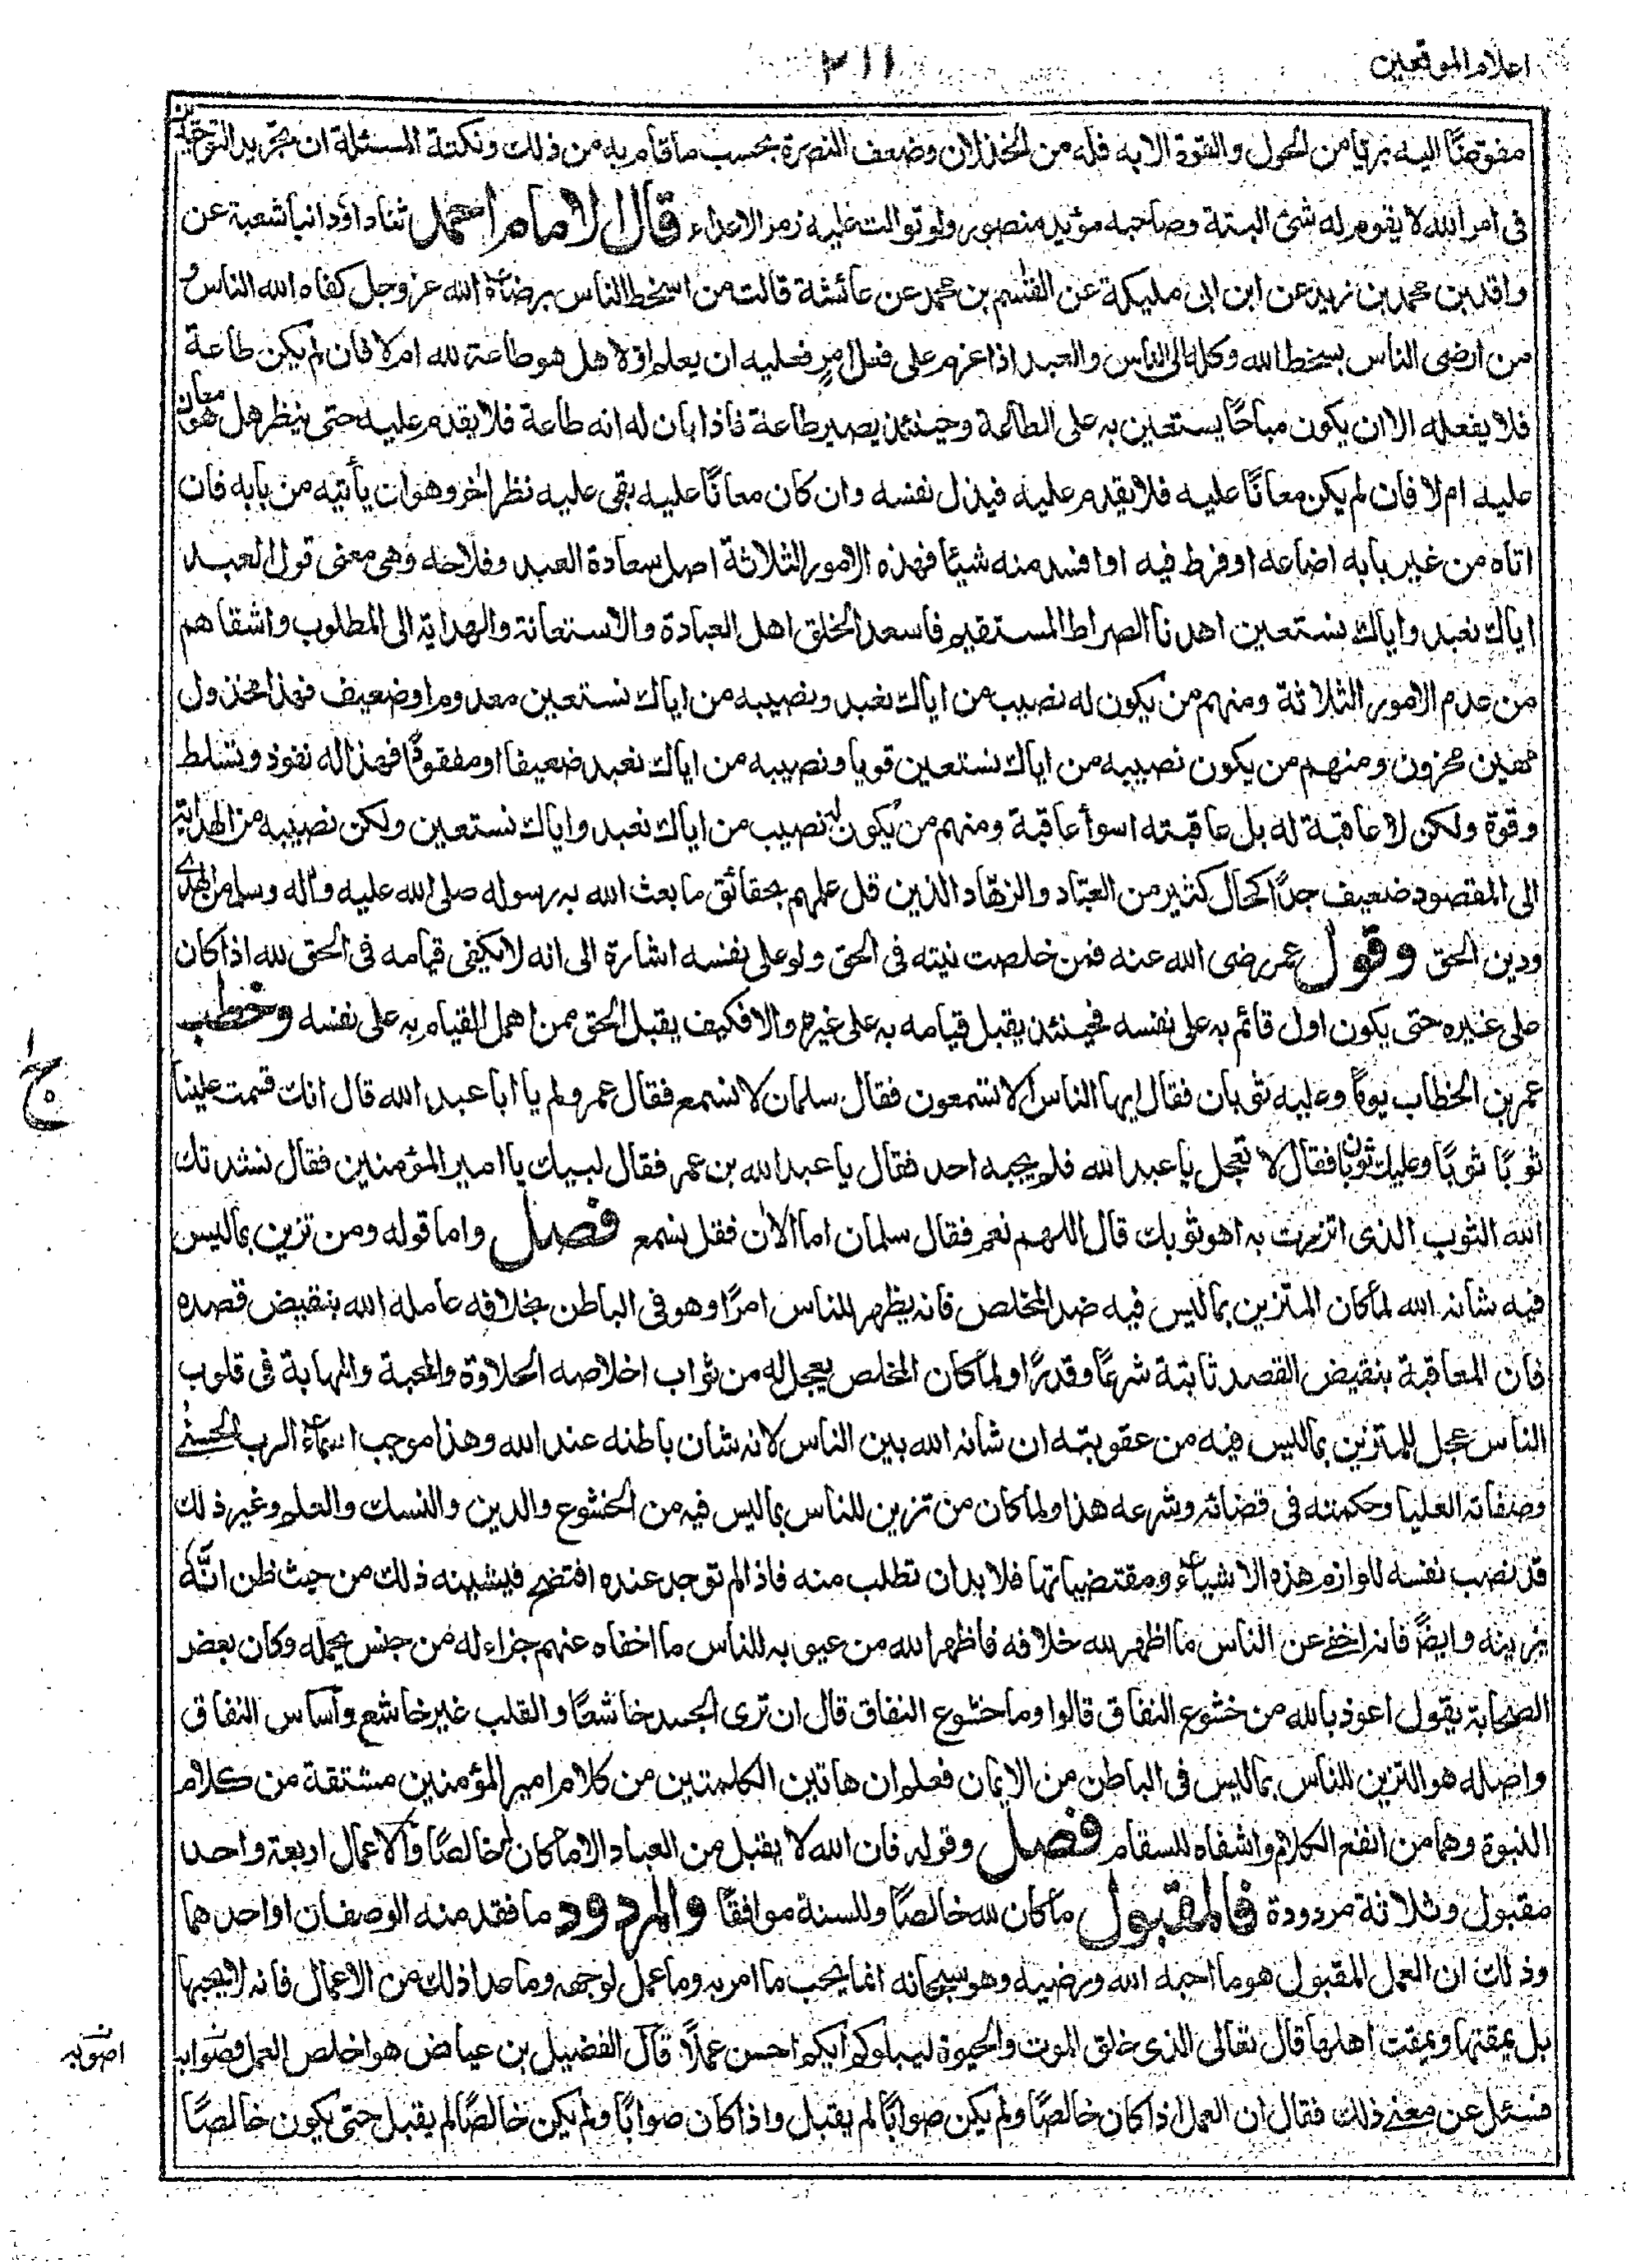 اعلام الموقعين
٢١١
مفوضًا اليه بريا من الحول والقوة الا به فله من الخذلان وضعف النصرة بحسب ما قام به من ذلك ونكتة المسئلة ان تجريد التوحيد
فى امر الله لا يقوم له شئ البتة وصاحبه مؤيد منصور ولو توالت عليه زمر الاعداء قال الامام احمد ثنا داؤد انبا شعبة عن
واقد بن محمد بن زيد عن ابن ابى مليكة عن القسم بن محمد عن عائشة قالت من اسخط الناس برضاء الله عز وجل كفاه الله الناس و
من ارضى الناس بسخط الله وكله الى الناس والعبد اذا عزم على فعل امرٍ فعليه ان يعلم اولا هل هو طاعة لله ام لا فان لم يكن طاعة
فلا يفعله الا ان يكون مباحًا يستعين به على الطاعة وحينئذ يصير طاعة فاذا بان له انه طاعة فلا يقدم عليه حتى ينظر هل هو معان
عليه ام لا فان لم يكن معانًا عليه فلا يقدم عليه فيذل نفسه وان كان معانًا عليه بقى عليه نظر اخر وهو ان يأتيه من بابه فان
اتاه من غير بابه اضاعه او فرط فيه او افسد منه شيئا فهذه الامور الثلاثة اصل سعادة العبد وفلاحه وهى معنى قول العبد
اياك نعبد واياك نستعين اهدنا الصراط المستقيم فاسعد الخلق اهل العبادة والاستعانة والهداية الى المطلوب واشقاهم
من عدم الامور الثلاثة ومنهم من يكون له نصيب من اياك نعبد ونصيبه من اياك نستعين معدوم او ضعيف فهذا مخذول
مهين محزون ومنهم من يكون نصيبه من اياك نستعين قويا ونصيبه من اياك نعبد ضعيفا او مفقودًا فهذا له نفوذ وتسلط
وقوة ولكن لا عاقبة له بل عاقبته اسوأ عاقبة ومنهم من يكون له نصيب من اياك نعبد واياك نستعين ولكن نصيبه من الهداية
الى المقصود ضعيف جدًا كحال كثير من العبّاد والزهّاد الذين قل علمهم بحقائق ما بعث الله به رسوله صلى الله عليه واله وسلم من الهدى
ودين الحق وقول عمر رضى الله عنه فمن خلصت نيته فى الحق ولو على نفسه اشارة الى انه لا يكفى قيامه فى الحق لله اذا كان
على غيره حتى يكون اول قائم به على نفسه فحينئذ يقبل قيامه به على غيره والا فكيف يقبل الحق ممن اهمل القيام به على نفسه وخطب
عمر بن الخطاب يومًا وعليه ثوبان فقال ايها الناس الا تسمعون فقال سلمان لا نسمع فقال عمر ولم يا ابا عبد الله قال انك قسمت علينا
ثوبًا ثوبًا وعليك ثوبان فقال لا تعجل يا عبد الله فلم يجبه احد فقال يا عبد الله بن عمر فقال لبيك يا امير المؤمنين فقال نشدتك
الله الثوب الذى اتزرت به اهو ثوبك قال اللهم نعم فقال سلمان اما الان فقل نسمع فصل واما قوله ومن تزين بما ليس
فيه شانه الله لما كان المتزين بما ليس فيه ضد المخلص فانه يظهر للناس امرًا وهو فى الباطن بخلافه عامله الله بنقيض قصده
فان المعاقبة بنقيض القصد ثابتة شرعًا وقدرًا ولما كان المخلص يعجل له من ثواب اخلاصه الحلاوة والمحبة والمهابة فى قلوب
الناس عجل للمتزين بما ليس فيه من عقوبته ان شانه الله بين الناس لانه شان باطنه عند الله وهذا موجب اسماء الرب الحسنى
وصفاته العليا وحكمته فى قضائه وشرعه هذا ولما كان من تزين للناس بما ليس فيه من الخشوع والدين والنسك والعلم وغير ذلك
قد نصب نفسه للوازم هذه الاشياء ومقتضياتها فلا بد ان تطلب منه فاذا لم توجد عنده افتضح فيشينه ذلك من حيث ظن انه
يزينه وايضًا فانه اخفى عن الناس ما اظهر لله خلافه فاظهر الله من عيوبه للناس ما اخفاه عنهم جزاء له من جنس عمله وكان بعض
الصحابة يقول اعوذ بالله من خشوع النفاق قالوا وما خشوع النفاق قال ان ترى الجسد خاشعًا والقلب غير خاشع وأساس النفاق
واصله هو التزين للناس بما ليس فى الباطن من الايمان فعلم ان هاتين الكلمتين من كلام امير المؤمنين مشتقة من كلام
النبوة وهما من انفع الكلام واشفاه للسقام فصل وقوله فان الله لا يقبل من العباد الا ما كان له خالصًا والاعمال اربعة واحد
مقبول وثلاثة مردودة فالمقبول ما كان لله خالصًا وللسنة موافقًا والمردود ما فقد منه الوصفان او احدهما
وذلك ان العمل المقبول هو ما احبه الله ورضيه وهو سبحانه انما يحب ما امر به وما عمل لوجهه وما عدا ذلك من الاعمال فانه لا يحبها
بل يمقتها ويمقت اهلها قال تعالى الذى خلق الموت والحيوة ليبلوكم ايكم احسن عملًا قال الفضيل بن عياض هو اخلص العمل وصوابه
فسئل عن معنى ذلك فقال ان العمل اذا كان خالصًا ولم يكن صوابًا لم يقبل واذا كان صوابًا ولم يكن خالصًا لم يقبل حتى يكون خالصًا
ج ١
اصوبه